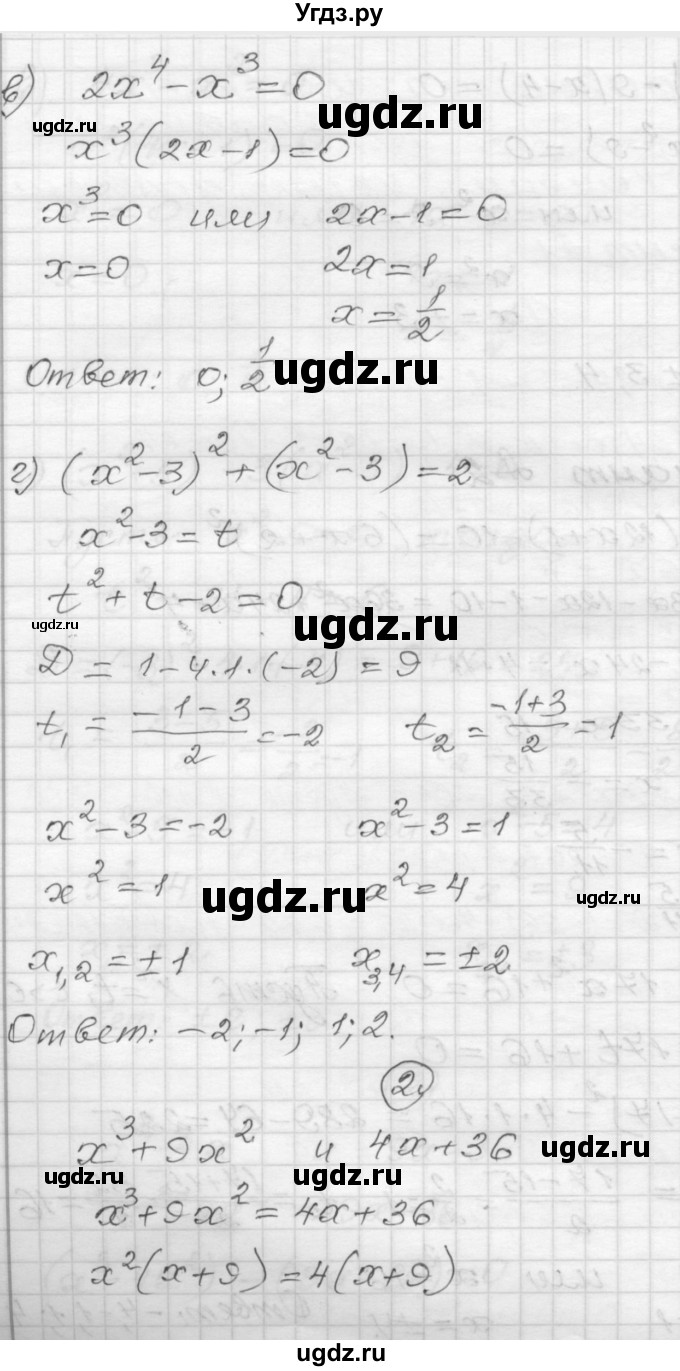 Угдз.ру
в) 2x⁴ - x³ = 0
ugdz.ru ugdz.ru
x³(2x-1)=0
x³=0 или 2x-1=0
x=0 2x=1
x=1/2
Ответ: 0; 1/2 ugdz.ru
г) (x²-3)² + (x²-3) = 2
x²-3=t
t²+t-2=0
ugdz.ru ugdz.ru
D = 1-4·1·(-2) = 9
t₁ = (-1-3)/2 = -2 t₂ = (-1+3)/2 = 1
x²-3=-2 x²-3=1
x²=1 ugdz.ru x²=4 ugdz.ru
x₁,₂ = ±1 x₃,₄ = ±2
Ответ: -2; -1; 1; 2.
2у
x³+9x² и 4x+36 ugdz.ru
ugdz.ru
x³+9x²=4x+36
x²(x+9)=4(x+9)
ugdz.ru